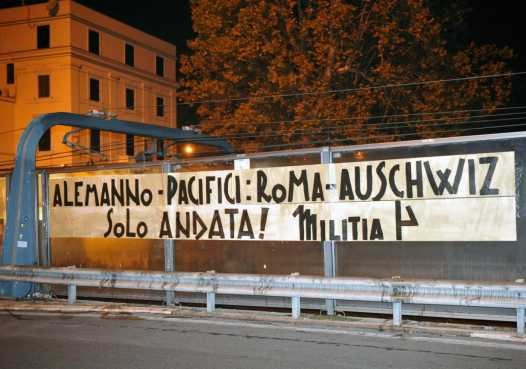 ALEMANNO - PACIFICI: ROMA - AUSCHWIZ
SOLO ANDATA! MILITIA